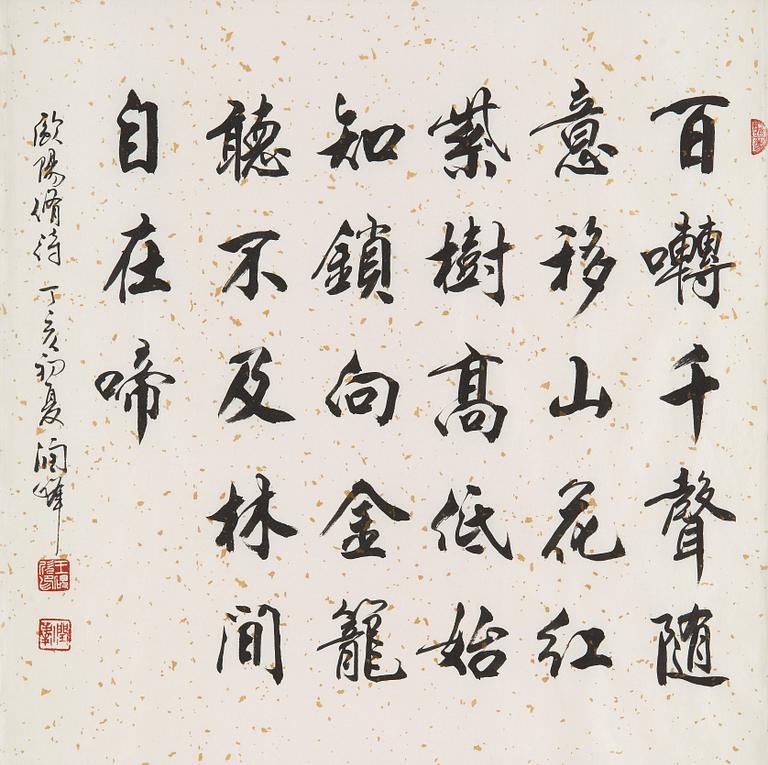 百囀千聲隨
意移山花紅
紫樹高低始
知鎖向金籠
聽不及林間
自在啼
歐陽脩詩 丁亥初夏 潤